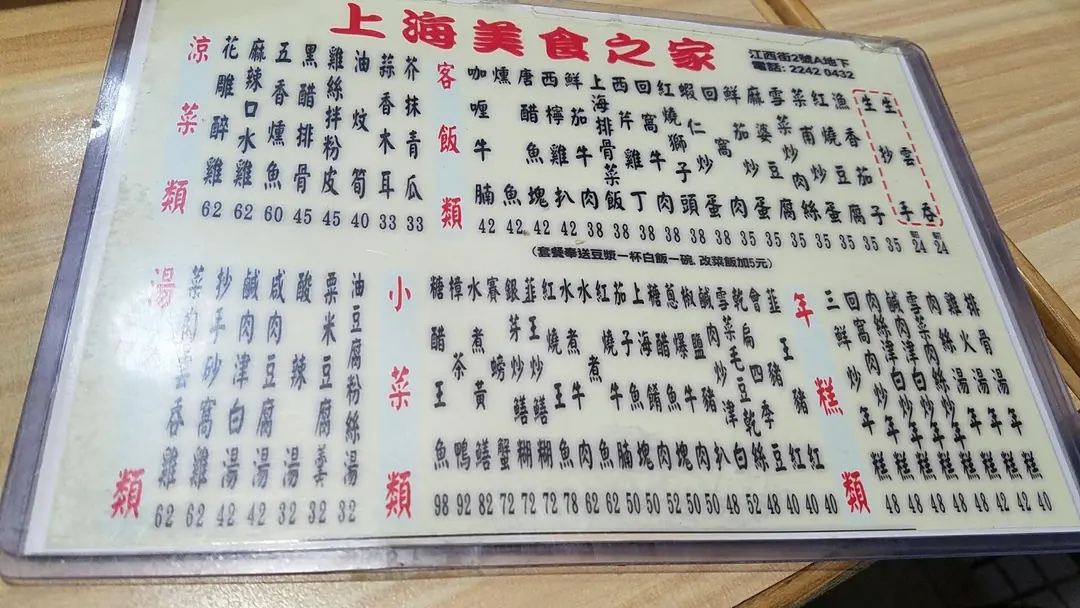 上海美食之家
江西街2號A地下
電話: 2242 0432
涼菜類
花雕醉雞 62
麻辣口水雞 62
五香燻魚 60
黑醋排骨 45
雞絲拌粉皮 45
油炆筍 40
蒜香木耳 33
芥抹青瓜 33
客飯類
咖喱牛腩 42
燻魚 42
唐醋魚塊 42
西檸雞扒 42
鮮茄肉 38
上海排骨菜飯 38
西芹雞丁 38
回窩牛肉 38
紅燒獅子頭 38
蝦仁炒蛋 38
回窩肉 35
鮮茄炒蛋 35
麻婆豆腐 35
雪菜炒肉絲 35
菜甫炒蛋 35
紅燒豆腐 35
漁香茄子 35
生抄手 24
生雲吞 24
(套餐奉送豆漿一杯白飯一碗, 改菜飯加5元)
湯類
菜肉雲吞雞 62
抄手砂窩雞 62
鹹肉津白湯 42
咸肉豆腐湯 42
酸辣湯 32
粟米豆腐羹 32
油豆腐粉絲湯 32
小菜類
糖醋王魚 98
樟茶鴨 92
水煮黃鱔 82
賽螃蟹 72
銀芽炒鱔糊 72
韮王炒鱔糊 72
紅燒王魚 78
水煮牛肉 62
水煮魚 62
紅燒牛腩 50
茄子魚塊 50
上海餚肉 52
糖醋魚塊 50
葱爆牛肉 50
椒鹽豬扒 48
鹹肉津白 52
雪菜炒毛豆乾絲 48
乾扁四季豆 40
會豬紅 40
韮王豬紅 40
年糕類
三鮮炒年糕 48
回窩肉炒年糕 48
肉絲津白炒年糕 48
鹹肉津白炒年糕 48
雪菜肉絲炒年糕 48
肉絲湯年糕 42
雞火湯年糕 42
排骨湯年糕 40